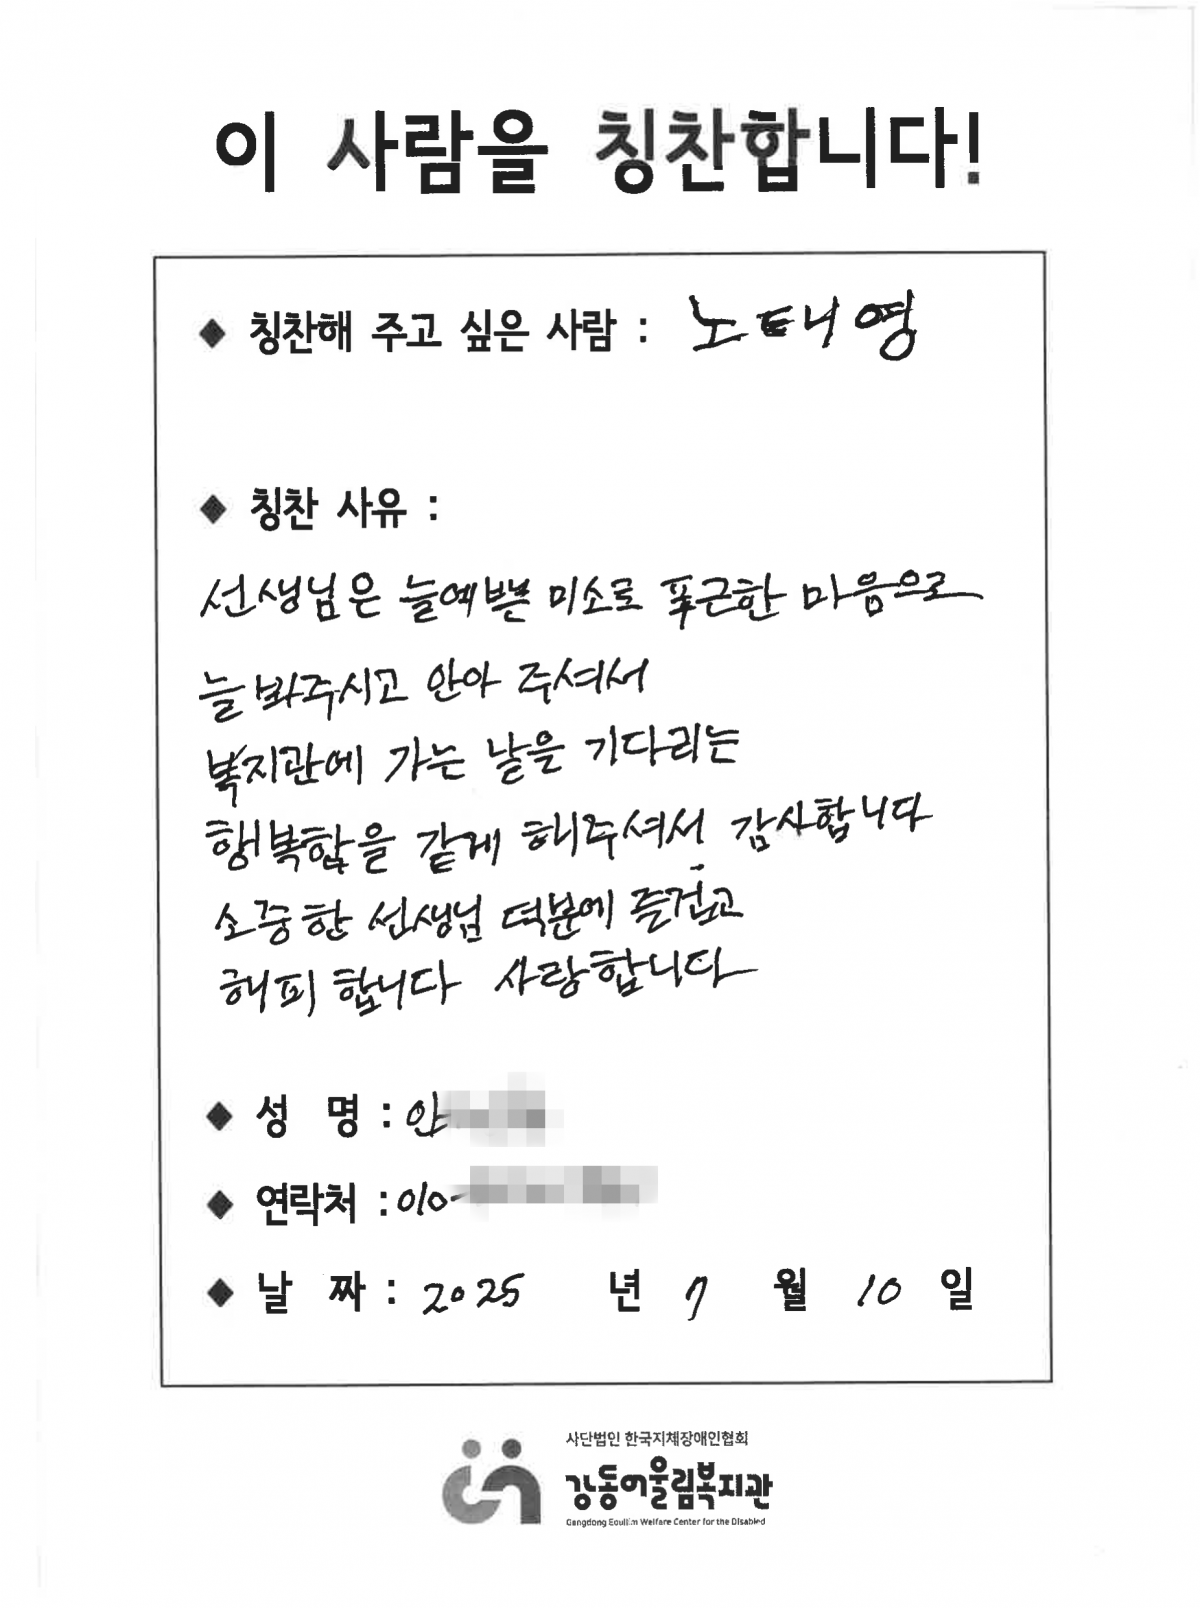 이 사람을 칭찬합니다!
◆ 칭찬해 주고 싶은 사람 : 노태영
◆ 칭찬 사유 :
선생님은 늘예쁜 미소로 푹근한 마음으로
늘 봐주시고 안아 주셔서
복지관에 가는 날을 기다리는
행복함을 갖게 해주셔서 감사합니다
소중한 선생님 덕분에 즐겁고
해피 합니다 사랑합니다
◆ 성 명 : 안
◆ 연락처 : 010-
◆ 날 짜 : 2025 년 7 월 10 일
사단법인 한국지체장애인협회
강동어울림복지관
Gangdong Eoullim Welfare Center for the Disabled